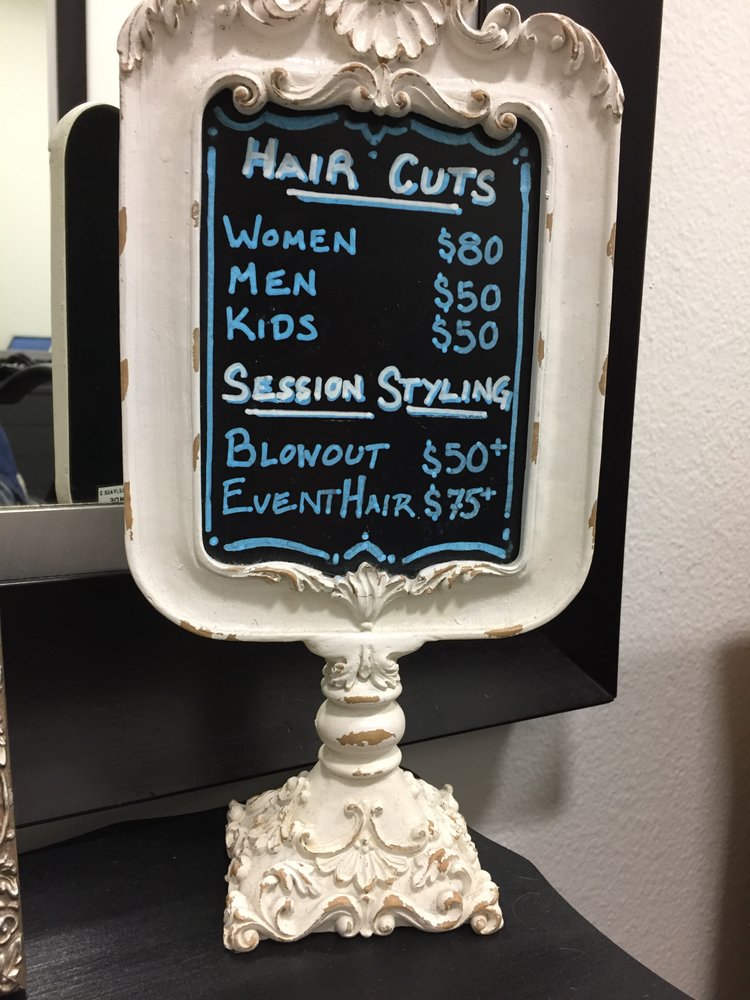 HAIR CUTS
WOMEN $80
MEN $50
KIDS $50
SESSION STYLING
BLOWOUT $50+
EVENT HAIR $75+